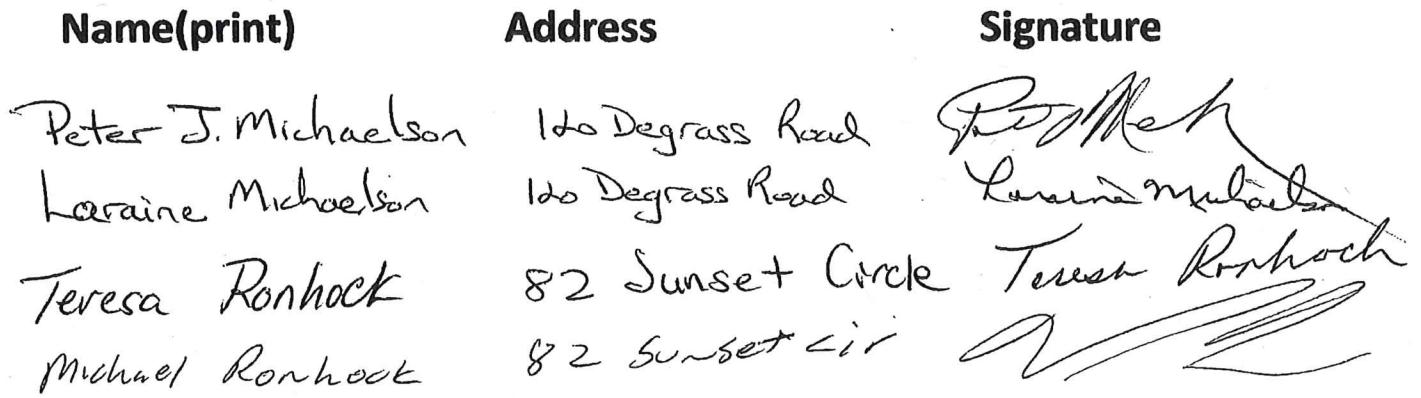 Name(print) Address Signature
Peter J. Michaelson 120 Degrass Road
Laraine Michaelson 120 Degrass Road Laraine Michaelson
Teresa Ronhock 82 Sunset Circle Teresa Ronhock
Michael Ronhock 82 Sunset Cir